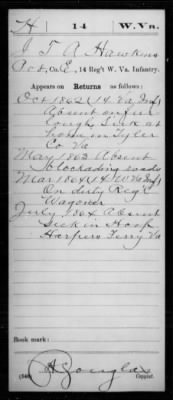 H 14 W. Va.
T A Hawkins
Pvt, Co. E, 14 Reg't W. Va. Infantry.
Appears on Returns as follows:
Oct 1862 (14 Va Inf)
Absent on fur
lough, Sick at
home in Tyler
Co Va
May 1863 Absent
blockading roads
Mar 1864 (14 W Va Inf)
On duty Reg'l
Wagoner
July 1864 Absent
Sick in Hosp
Harpers Ferry Va
Book mark:
(546)
Copyist.